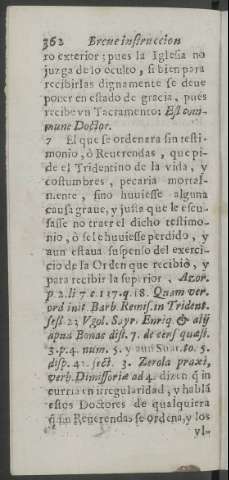 362 Breue instruccion
ro exterior: pues la Iglesia no
juzga de lo oculto, si bien para
recibirlas dignamente se deue
poner en estado de gracia, pues
recibe vn Tacramento: Est com-
mune Doctor.
7 El que se ordenara sin testi-
monio, ò Reuerendas, que pi-
de el Tridentino de la vida, y
costumbres, pecaria mortal-
mente, sino huuiesse alguna
causa graue, y justa que le escu-
sasse no traer el dicho testimo-
nio, ò se le huuiesse perdido, y
aun estaua suspenso del exerci-
cio de la Orden que recibiò, y
para recibir la superior. Azor.
p 2. li 7 c. 117. q. 18. Quam ver.
ord init Barb. Remis. in Trident.
sess. 23 Vgol. Sayr. Enriq. & alij
apud Bonac disp. 7. de cens quæst.
3. p. 4. num. 5. y aun Suar. to. 5.
disp. 42. sect. 3. Zerola praxi,
verb. Dimissoriæ ad 4. dizen q̃ in
curria en irregularidad, y habla
estos Doctores de qualquiera
q̃ sin Reuerendas se ordena, y los
vl-